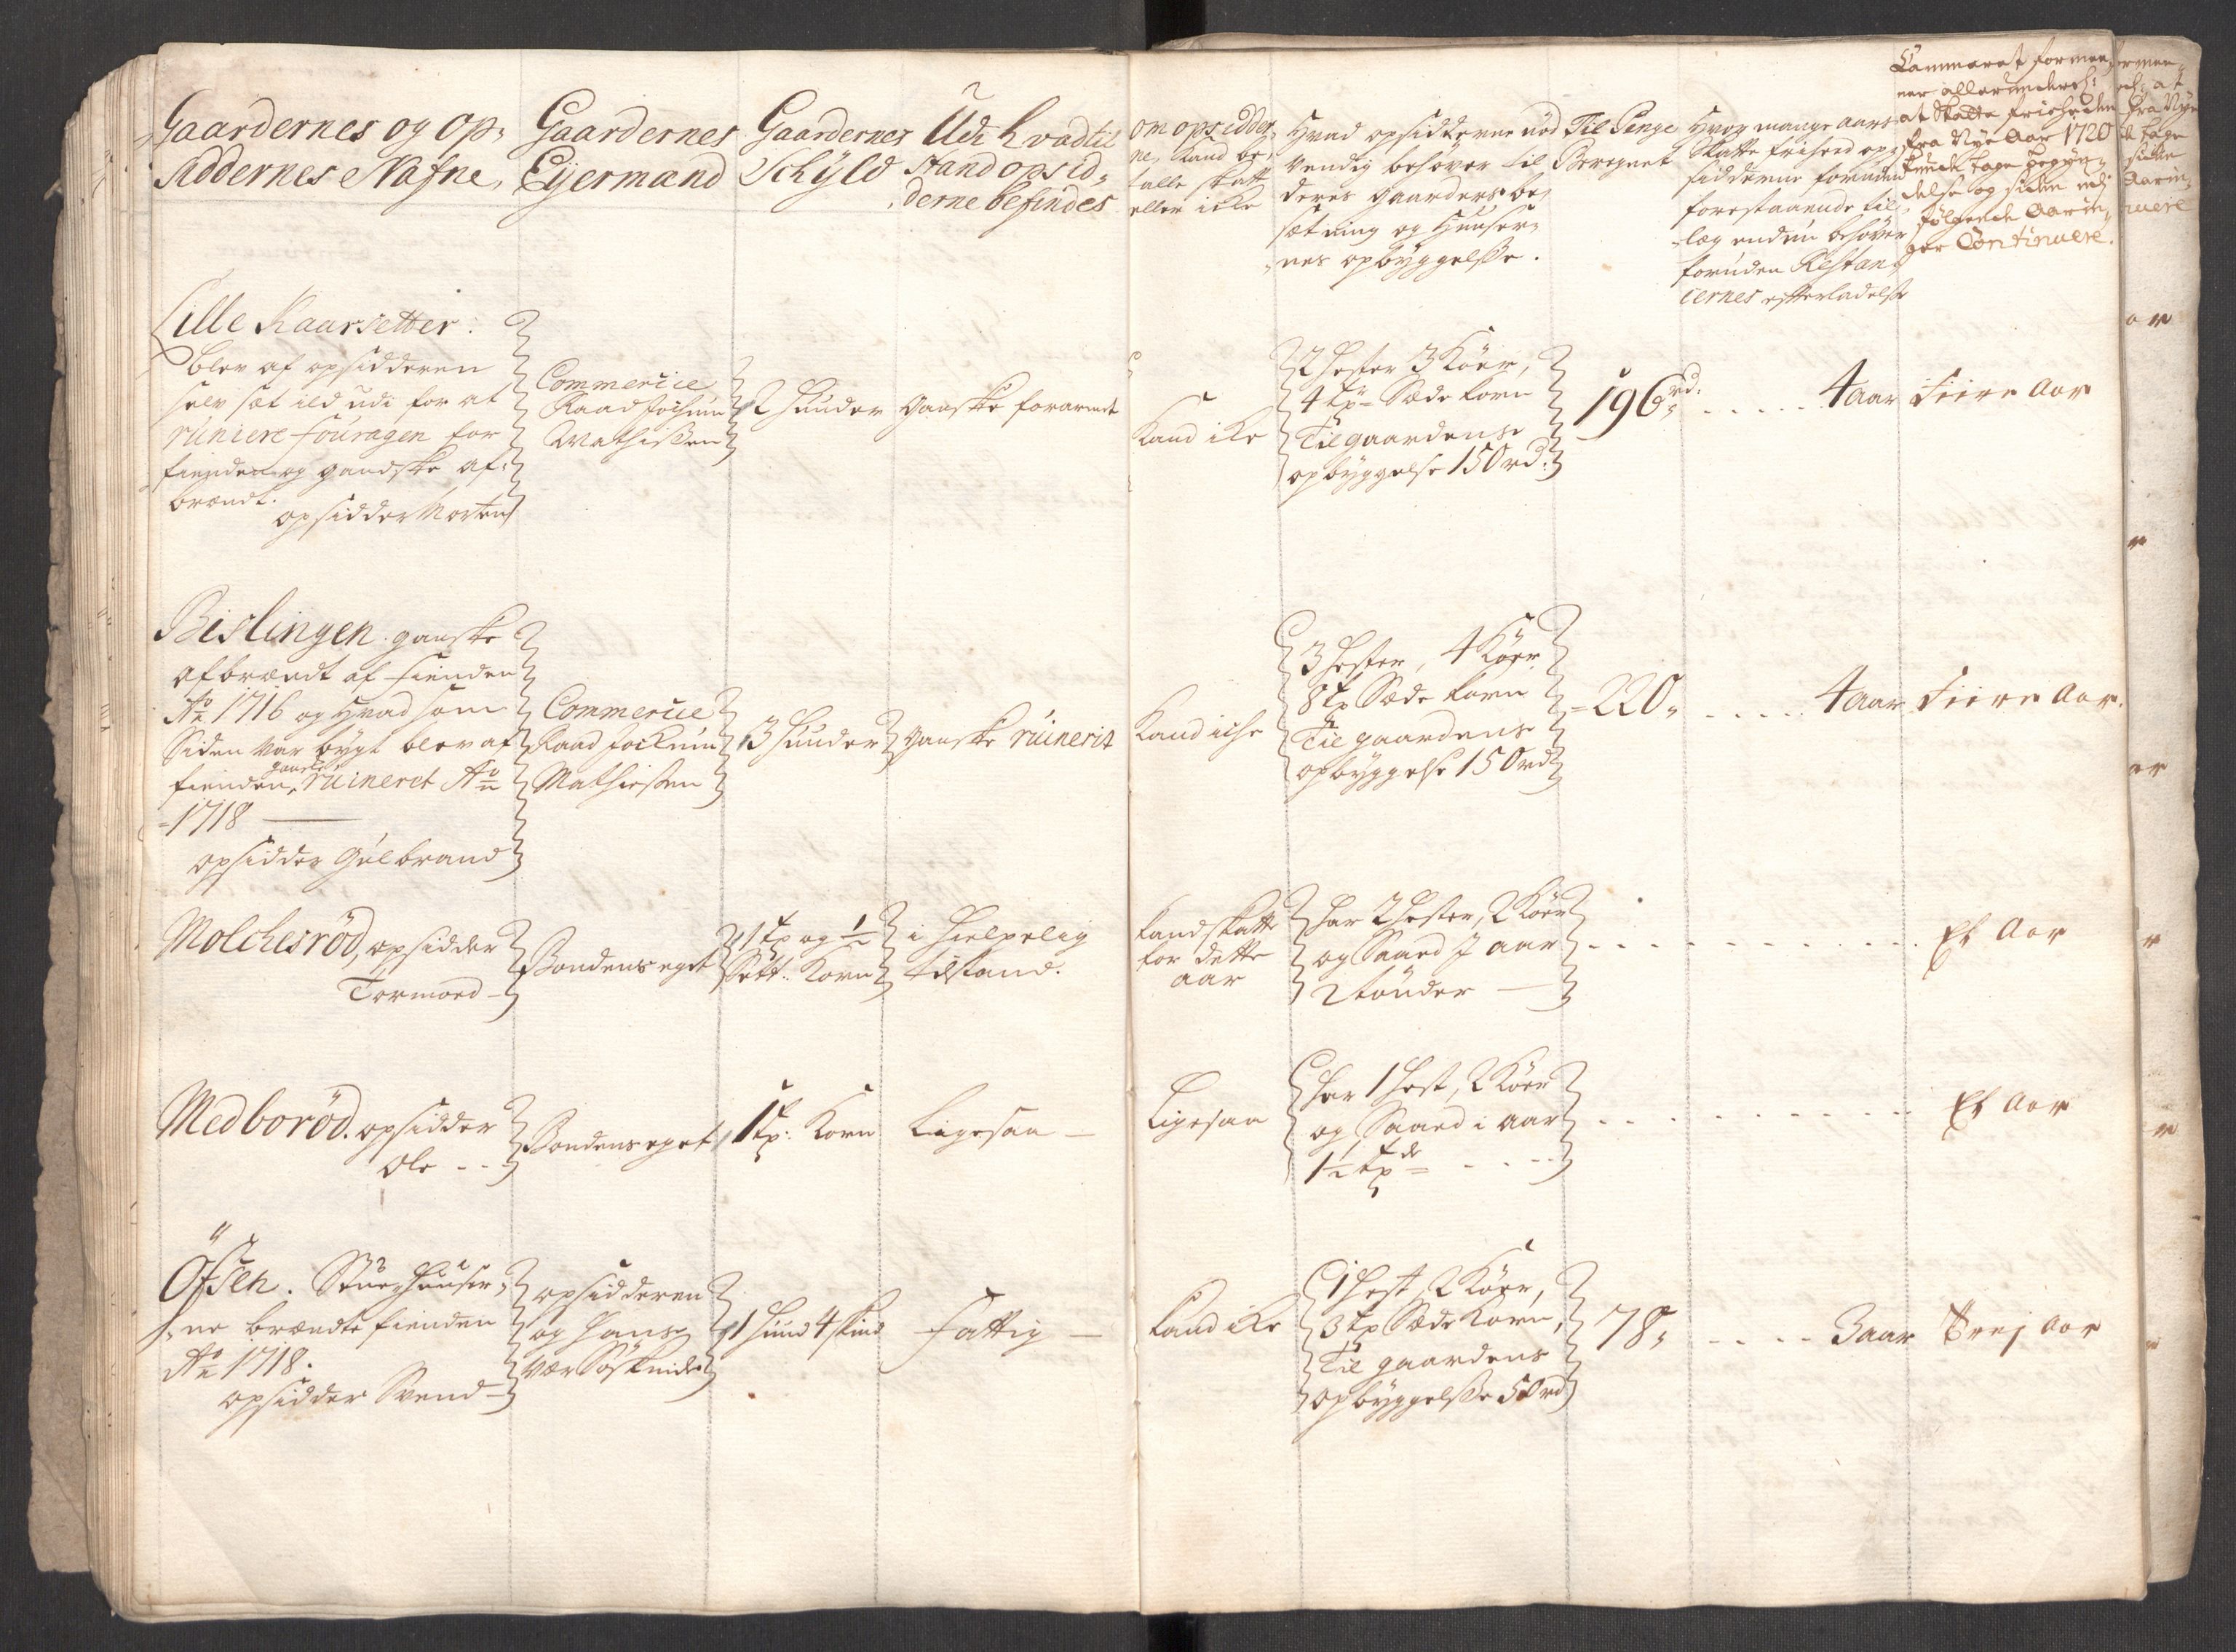 Gaardernes og Op-
siddernes Nafne,
Gaardernes
Eijermand
Gaardernes
Schÿld
Udi hvad til
stand opsid-
derne befindes
om opsidder-
ne, kand be-
talle skatt
eller icke
Hvad opsidderne nød
vendig behøver til
deres gaarders be-
sætning og Huuser-
nes opbyggelsse.
Til Penge
Beregnet
Hvor mange aars
Skatte friheed op-
sidderne foruden
forestaaende til-
læg endnu behøver
foruden Restan-
cernes efterladelse
Cammeret formee-
ner allerunderd:
at Skatte friheden
fra Nye Aar 1720
kunde tage begyn-
delse og siden udj
følgende Aarin-
ger Continuere.
Lille Kaarsetter.
blev af opsidderen
selv sæt ild udi for at
ruinere fouragen for
fienden og gandske af-
brændt.
opsidder Morten
Commercie
Raad Jochum
Mathissen
2 Huuder
ganske forarmet
Kand icke
2 Hester 3 Kiøer,
4 tr Sæde korn
Til gaardens
opbyggelse 150 rd:
196 rd:
4 aar
Fiire Aar
Bislingen. ganske
afbrændt af fienden
Ao 1716 og hvad som
Siden var bygt blev af
fienden ganske ruineret Ao
1718
opsidder Gulbrand
Commercie
Raad Jochum
Mathiesen
3 Huuder
ganske ruinerit
Kand iche
3 Hester, 4 Kiøer
8 tr Sæde korn
Til gaardens
opbyggelse 150 rd
220
4 aar
Fiire Aar.
Molchesrød, opsidder
Tormoed
Bondens eget
1 tp og 1/2
Sett: Korn
i Hielpelig
tilstand.
kand skatte
for dette
aar
har 2 Hester, 2 Kiøer
og Saaed J aar
2 tønder
Et Aar
Medborød. opsidder
Ole
Bondens eget
1 tp: Korn
Ligesaa
Ligesaa
har 1 Hest, 2 Kiøer
og Saaed i aar
1 1/2 tr
Et Aar
Öfsen. Stue Huuser-
ne brændte fienden
Ao 1718.
opsidder Svend
opsidderen
og hans
vær Søskinde
1 Hund 4 skind
Fattig
Kand icke
1 Hest, 2 Kiøer,
3 tp Sæde Korn,
Til gaardens
opbyggelsse 50 rd
78
3 aar
Trej Aar